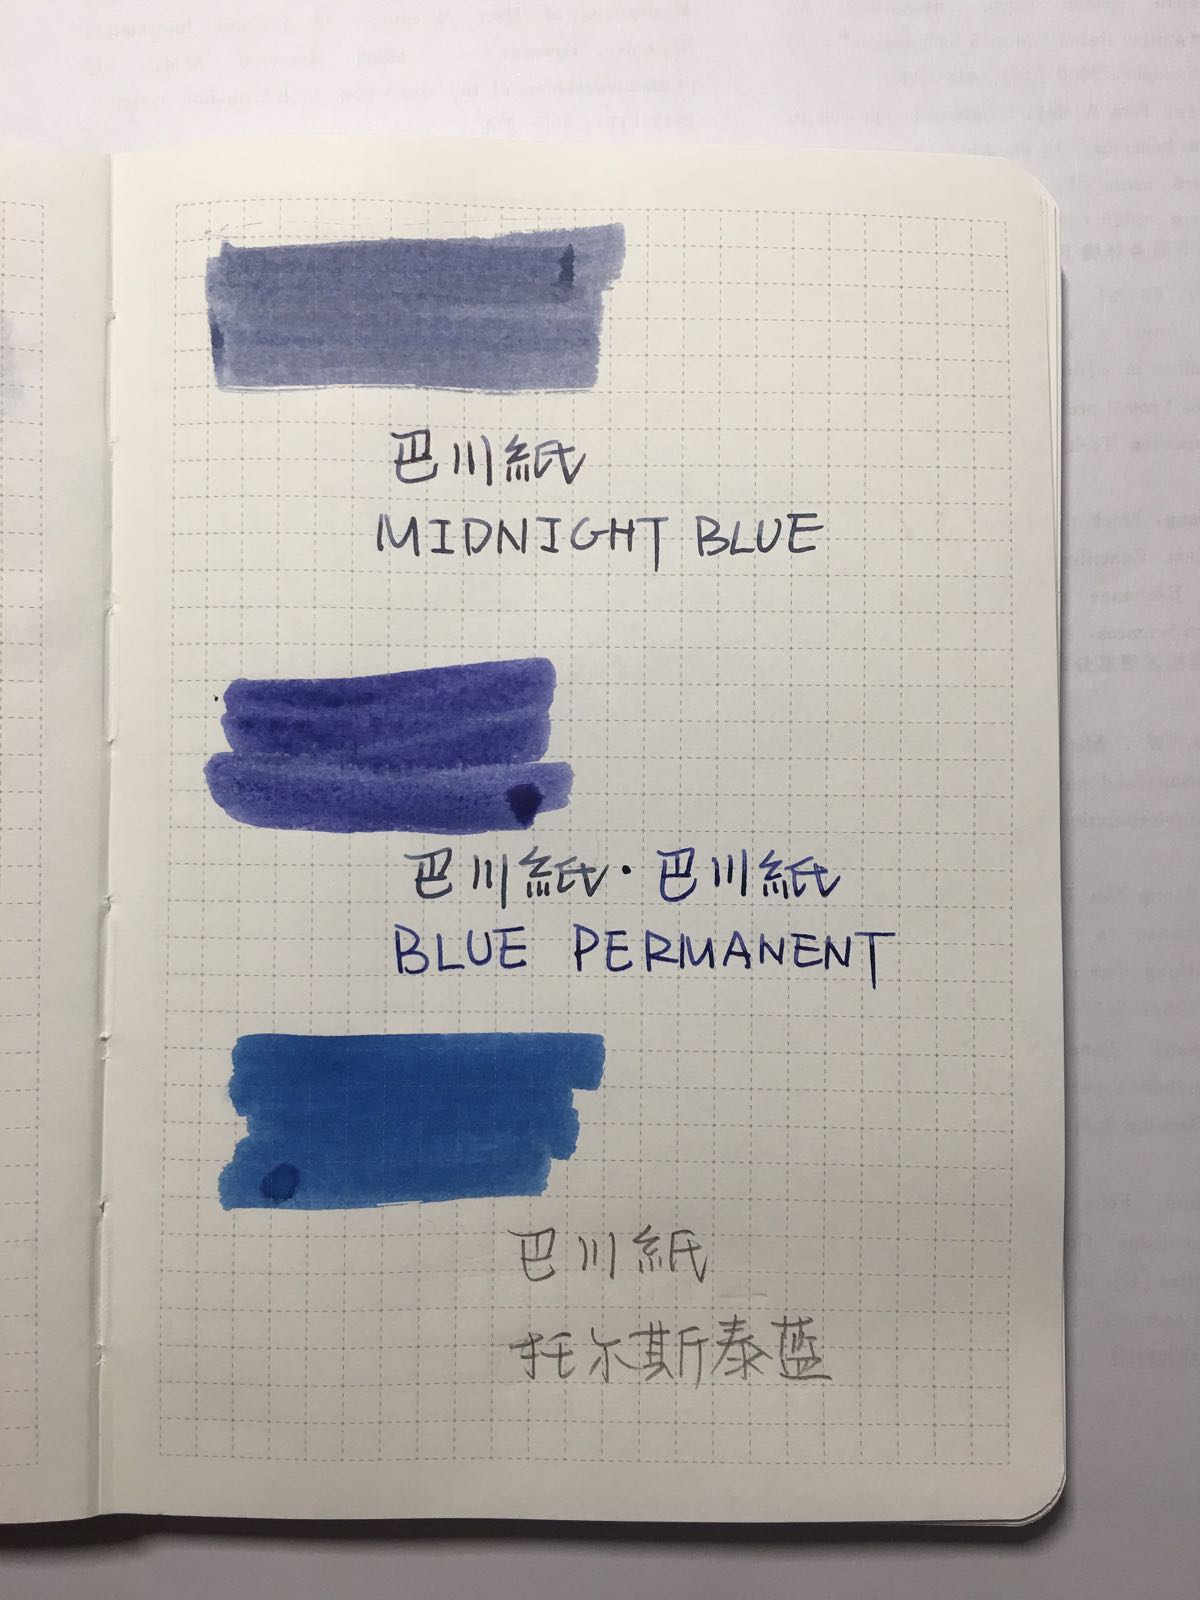 巴川紙
MIDNIGHT BLUE
巴川紙・巴川紙
BLUE PERMANENT
巴川紙
托尔斯泰蓝